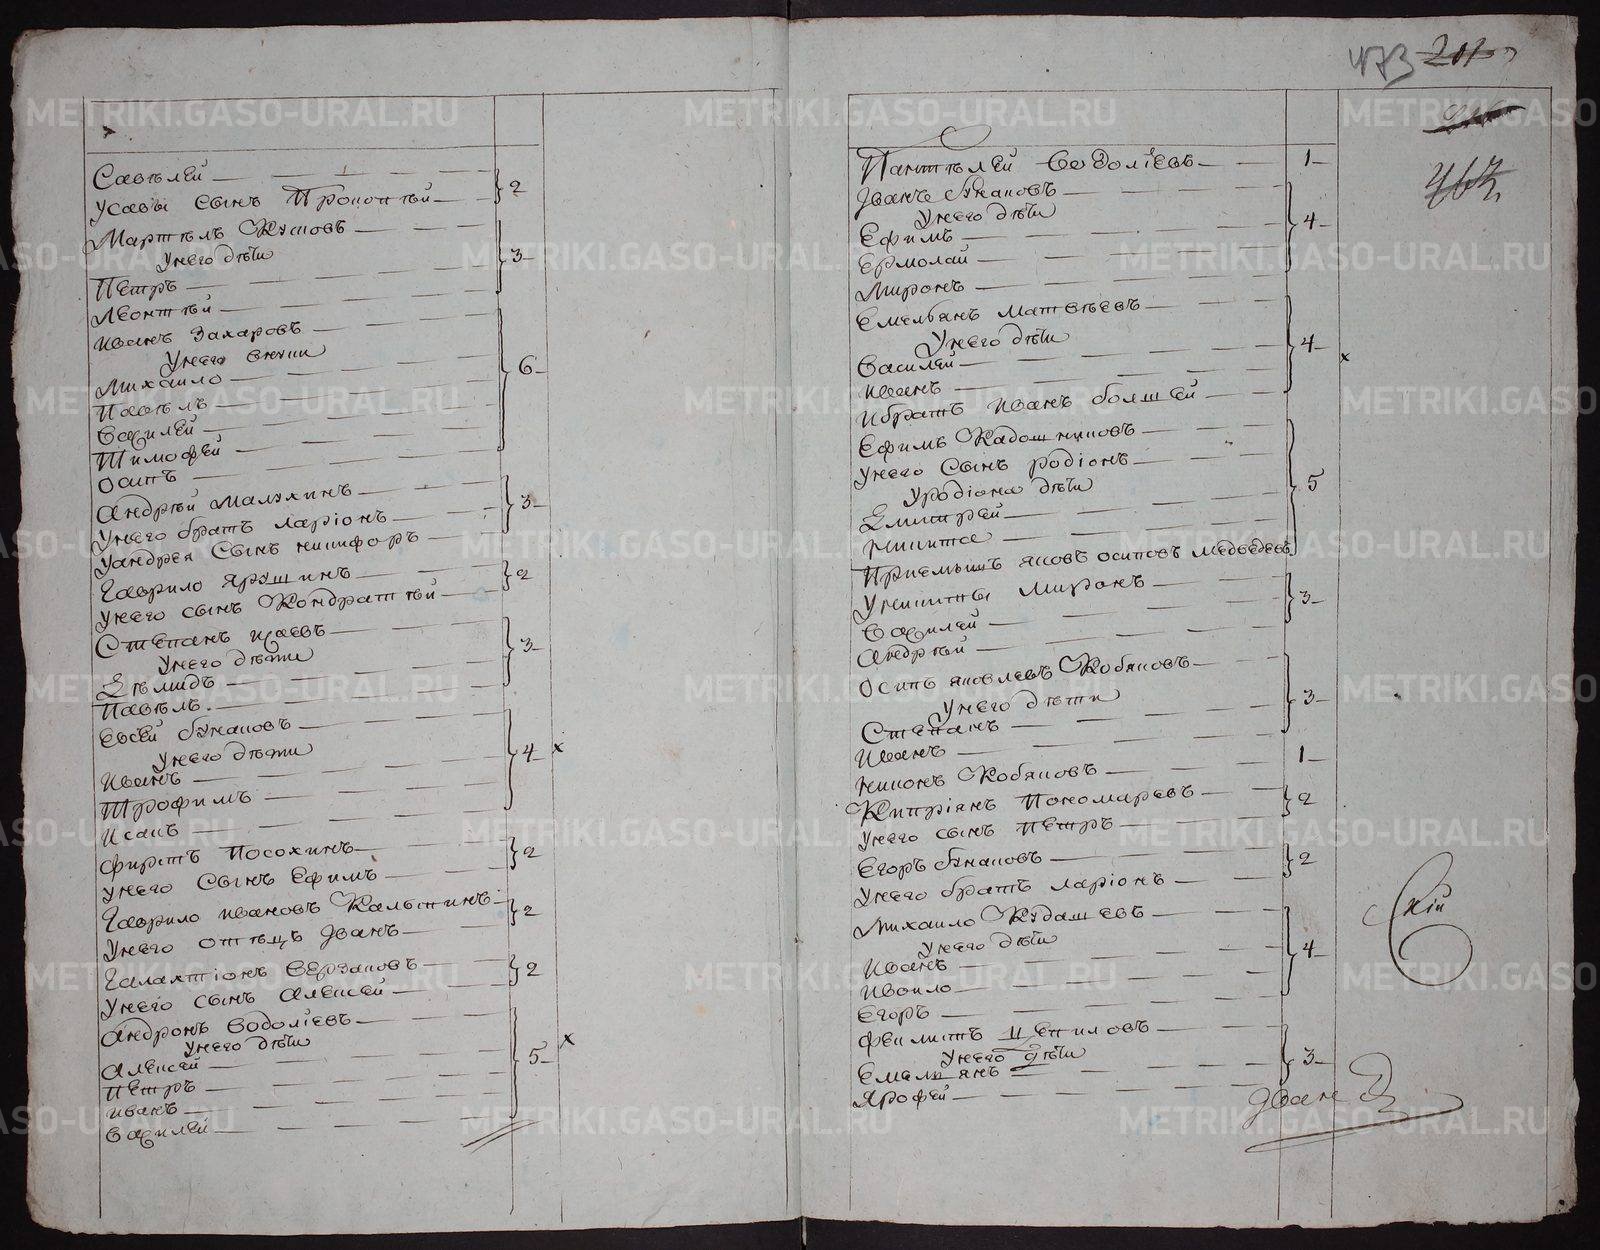 Савѣлей
Усавы сынъ Прокоптѣй
2
Мартѣлъ Кусовъ
Унего дѣти
3
Петръ
Леонтѣй
иванъ Захаровъ
Унего внуки
6
Михаило
Павѣлъ
Василей
Тимофей
Осипъ
Андрѣй Малухинъ
Унего братъ Ларіонъ
3
Уандрея Сынъ никифоръ
Гаврило Ярушинъ
2
Унего сынъ Кондратѣй
Степанъ
Унего дѣти
3
Павѣлъ
Евсѣй бунаковъ
Унего дѣти
4 х
Иванъ
Трофимъ
Исакъ
Посохинъ
2
Унего Сынъ Ефимъ
Гаврило ивановъ Калытинъ
2
Унего отѣцъ Іванъ
Галахтіонъ
2
Унего сынъ Алексей
Андронъ Водоліевъ
Унего дѣти
5 х
Алексей
Петръ
иванъ
Василей
473
201
467
Пантѣлей Водоліевъ
1
Іванъ бунаковъ
Унего дѣти
4
Ефимъ
Ермолай
Миронъ
Емельянъ Матвѣевъ
Унего дѣти
4 х
Василей
иванъ
ибратъ иванъ болшей
Ефимъ Кадошниковъ
Унего Сынъ родіонъ
5
Уродіона дѣти
Дмитрей
никита
Приемышъ яковъ осиповъ медведевъ
Уникиты Миронъ
3
Василей
Андрѣй
Осипъ яковлевъ Кобяковъ
Унего дѣти
3
Степанъ
Иванъ
никонъ Кобяковъ
1
Кипріянъ Пономаревъ
2
Унего сынъ Петръ
Егоръ бунаковъ
2
Унего братъ Ларіонъ
Михаило Кудашевъ
Унего дѣти
4
Иванъ
Егоръ
Филипъ Цепиловъ
Унего дѣти
3
Емельянъ
Ярофей
скій
Іванъ
METRIKI.GASO-URAL.RU